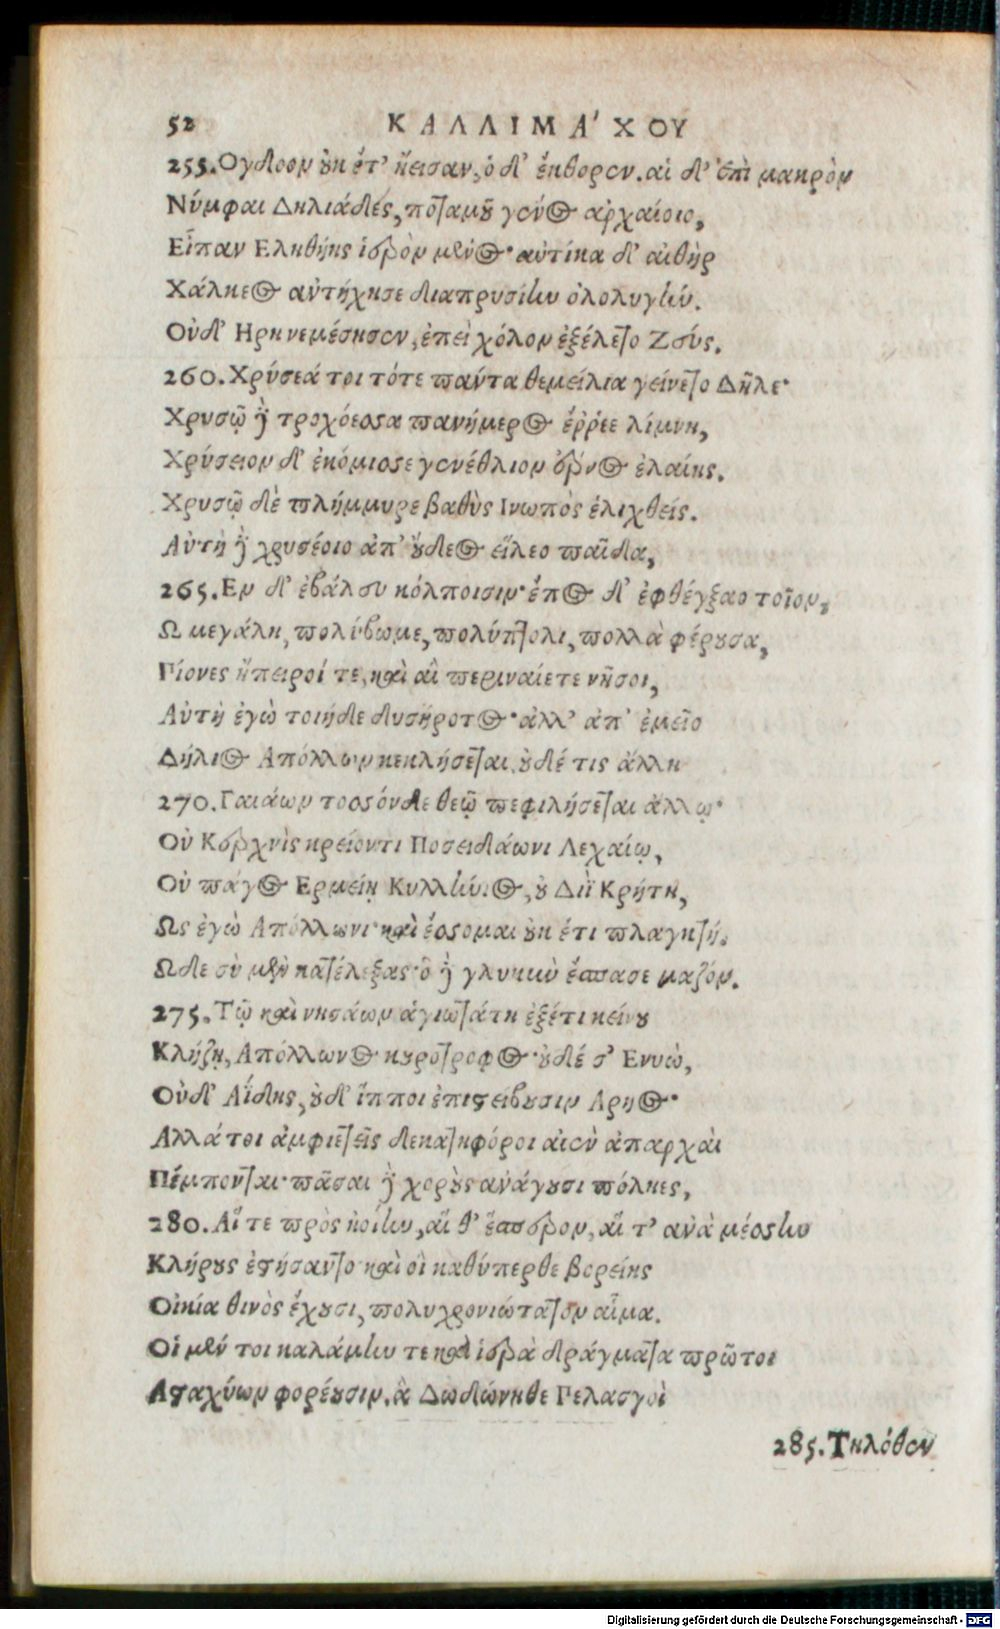 52 ΚΑΛΛΙΜΑ'ΧΟΥ
255. Ογδοον οὐκ ἔτ' ἤεισαν, ὁ δ' ἔκθορεν. αἱ δ' ἐπὶ μακρὸν
Νύμφαι Δηλιάδες, ποταμοῦ γένος ἀρχαίοιο,
Εἶπαν Εληθήης ἱερὸν μέλος· αὐτίκα δ' αἰθὴρ
Χάλκεος ἀντήχησε διαπρυσίην ὀλολυγήν.
Οὐδ' Ηρη νεμέσησεν, ἐπεὶ χόλον ἐξέλετο Ζεύς.
260. Χρύσεά τοι τότε πάντα θεμείλια γείνετο Δῆλε·
Χρυσῷ δὲ τροχόεσσα πανήμερος ἔῤῥεε λίμνη,
Χρύσειον δ' ἐκόμισσε γενέθλιον ἔρνος ἐλαίης.
Χρυσῷ δὲ πλήμμυρε βαθὺς Ινωπὸς ἑλιχθείς.
Αὐτὴ δὲ χρυσέοιο ἀπ' οὔδεος εἵλεο παῖδα,
265. Εν δ' ἐβάλευ κόλποισιν· ἔπος δ' ἐφθέγξαο τοῖον,
Ω μεγάλη, πολύβωμε, πολύπτολι, πολλὰ φέρουσα,
Πίονες ἤπειροί τε, καὶ αἳ περιναίετε νῆσοι,
Αὐτὴ ἐγὼ τοιήδε δυσήροτος· ἀλλ' ἀπ' ἐμεῖο
Δήλιος Απόλλων κεκλήσεται, οὐδέ τις ἄλλη
270. Γαιάων τοσσόνδε θεῷ πεφιλήσεται ἄλλῳ·
Οὐ Κερχνὶς κρείοντι Ποσειδάωνι Λεχαίῳ,
Οὐ πάγος Ερμείῃ Κυλλήν.ος, οὐ Διῒ Κρήτη,
Ως ἐγὼ Απόλλωνι· καὶ ἔσσομαι οὐκ έτι πλαγκτή.
Ωδε σὺ μὲν κατέλεξας· ὁ δὲ γλυκὺν ἔσπασε μαζόν.
275. Τῷ καὶ νησάων ἁγιωτάτη ἐξέτι κείνου
Κλήζῃ, Απόλλωνος κουροτρόφος· οὐδέ σ' Ενυὼ,
Οὐδ' Αΐδης, οὐδ' ἵπποι ἐπιστείβουσιν Αρηος·
Αλλά τοι ἀμφιετεῖς δεκατηφόροι αἰὲν ἀπαρχαὶ
Πέμπονται· πᾶσαι δὲ χοροὺς ἀνάγουσι πόληες,
280. Αἵ τε πρὸς ἠοίην, αἵ θ' ἕσπερον, αἵ τ' ἀνὰ μέσσην
Κλήρους ἐστήσαντο· καὶ οἳ καθύπερθε βορείης
Οἰκία θινὸς ἔχουσι, πολυχρονιώτατον αἷμα.
Οἱ μέν τοι καλάμην τε καὶ ἱερὰ δράγματα πρῶτοι
Ασταχύων φορέουσιν. ἃ Δωδώνηθε Πελασγοὶ
285. Τηλόθεν
Digitalisierung gefördert durch die Deutsche Forschungsgemeinschaft - DFG